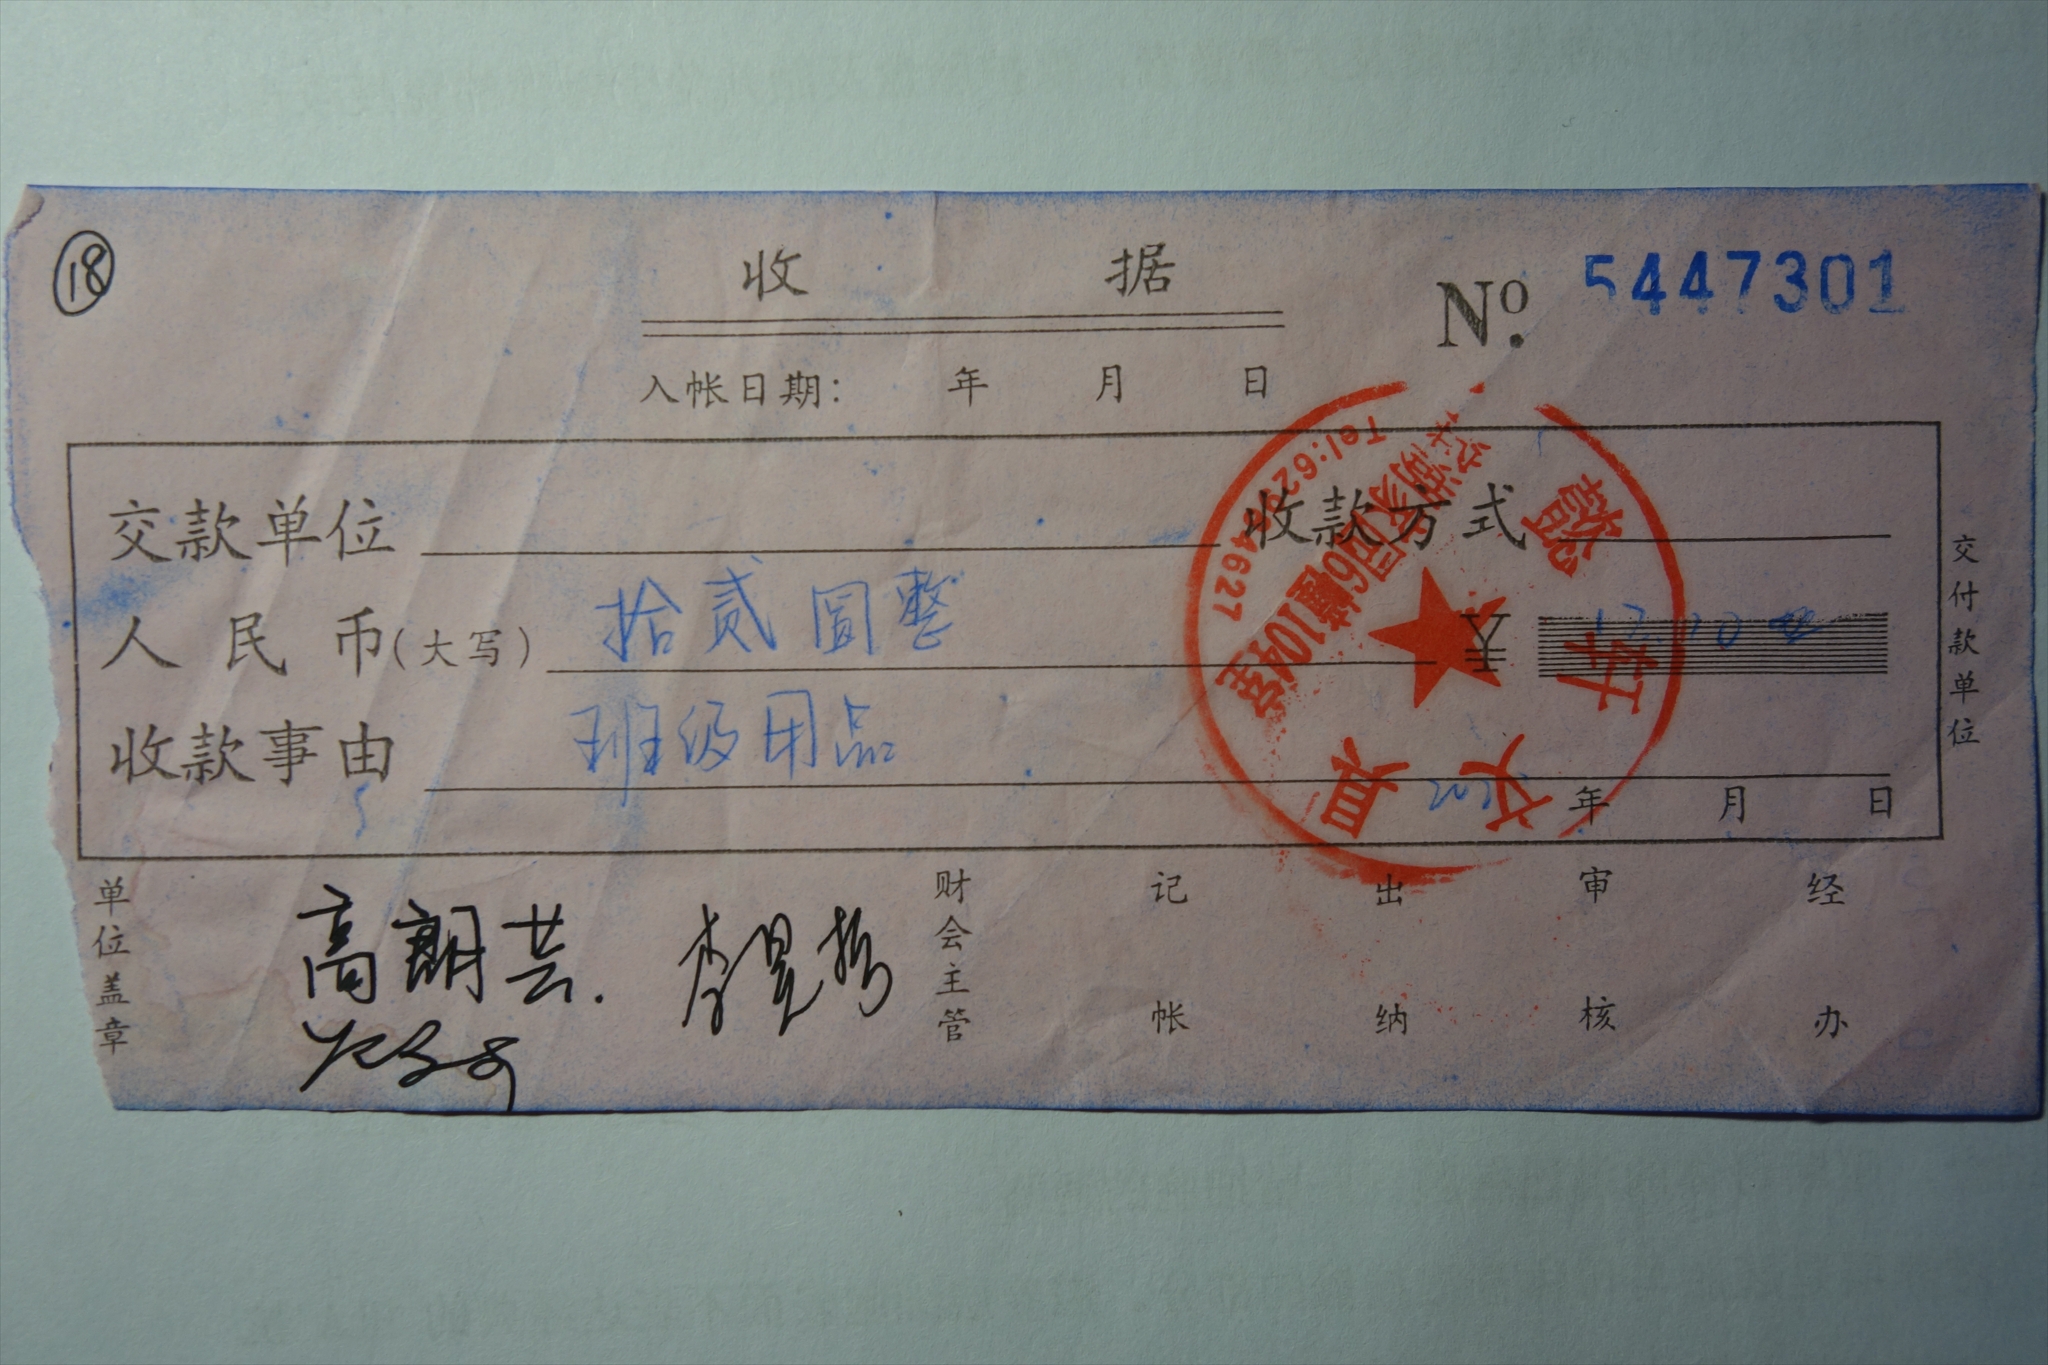 18
收 据
No. 5447301
入帐日期： 年 月 日
交款单位 收款方式
人民币（大写） 拾贰圆整 ¥
收款事由 班级用品
年 月 日
交付款单位
Tel:62 4627
6幢104室
文具
单位盖章 高朗芸. 财会主管 记帐 出纳 审核 经办